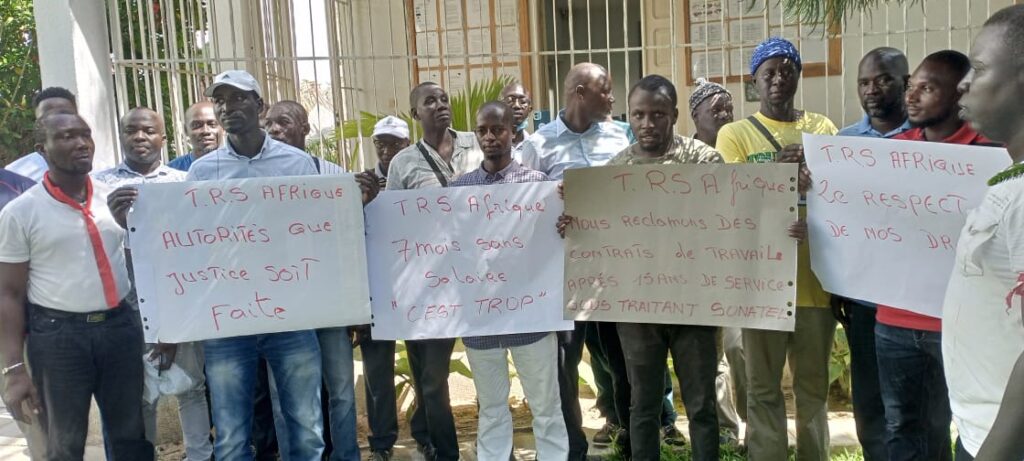 T.R.S AFRIQUE
AUTORITÉS QUE
JUSTICE SOIT
FAITE
TRS AFRIQUE
7 MOIS SANS
SALAIRE
"C'EST TROP"
T.R.S AFRIQUE
NOUS RECLAMONS DES
CONTRATS DE TRAVAILE
APRÉS 15 ANS DE SERVICE
SOUS TRAITANT SONATEL
T.R.S AFRIQUE
LE RESPECT
DE NOS DR